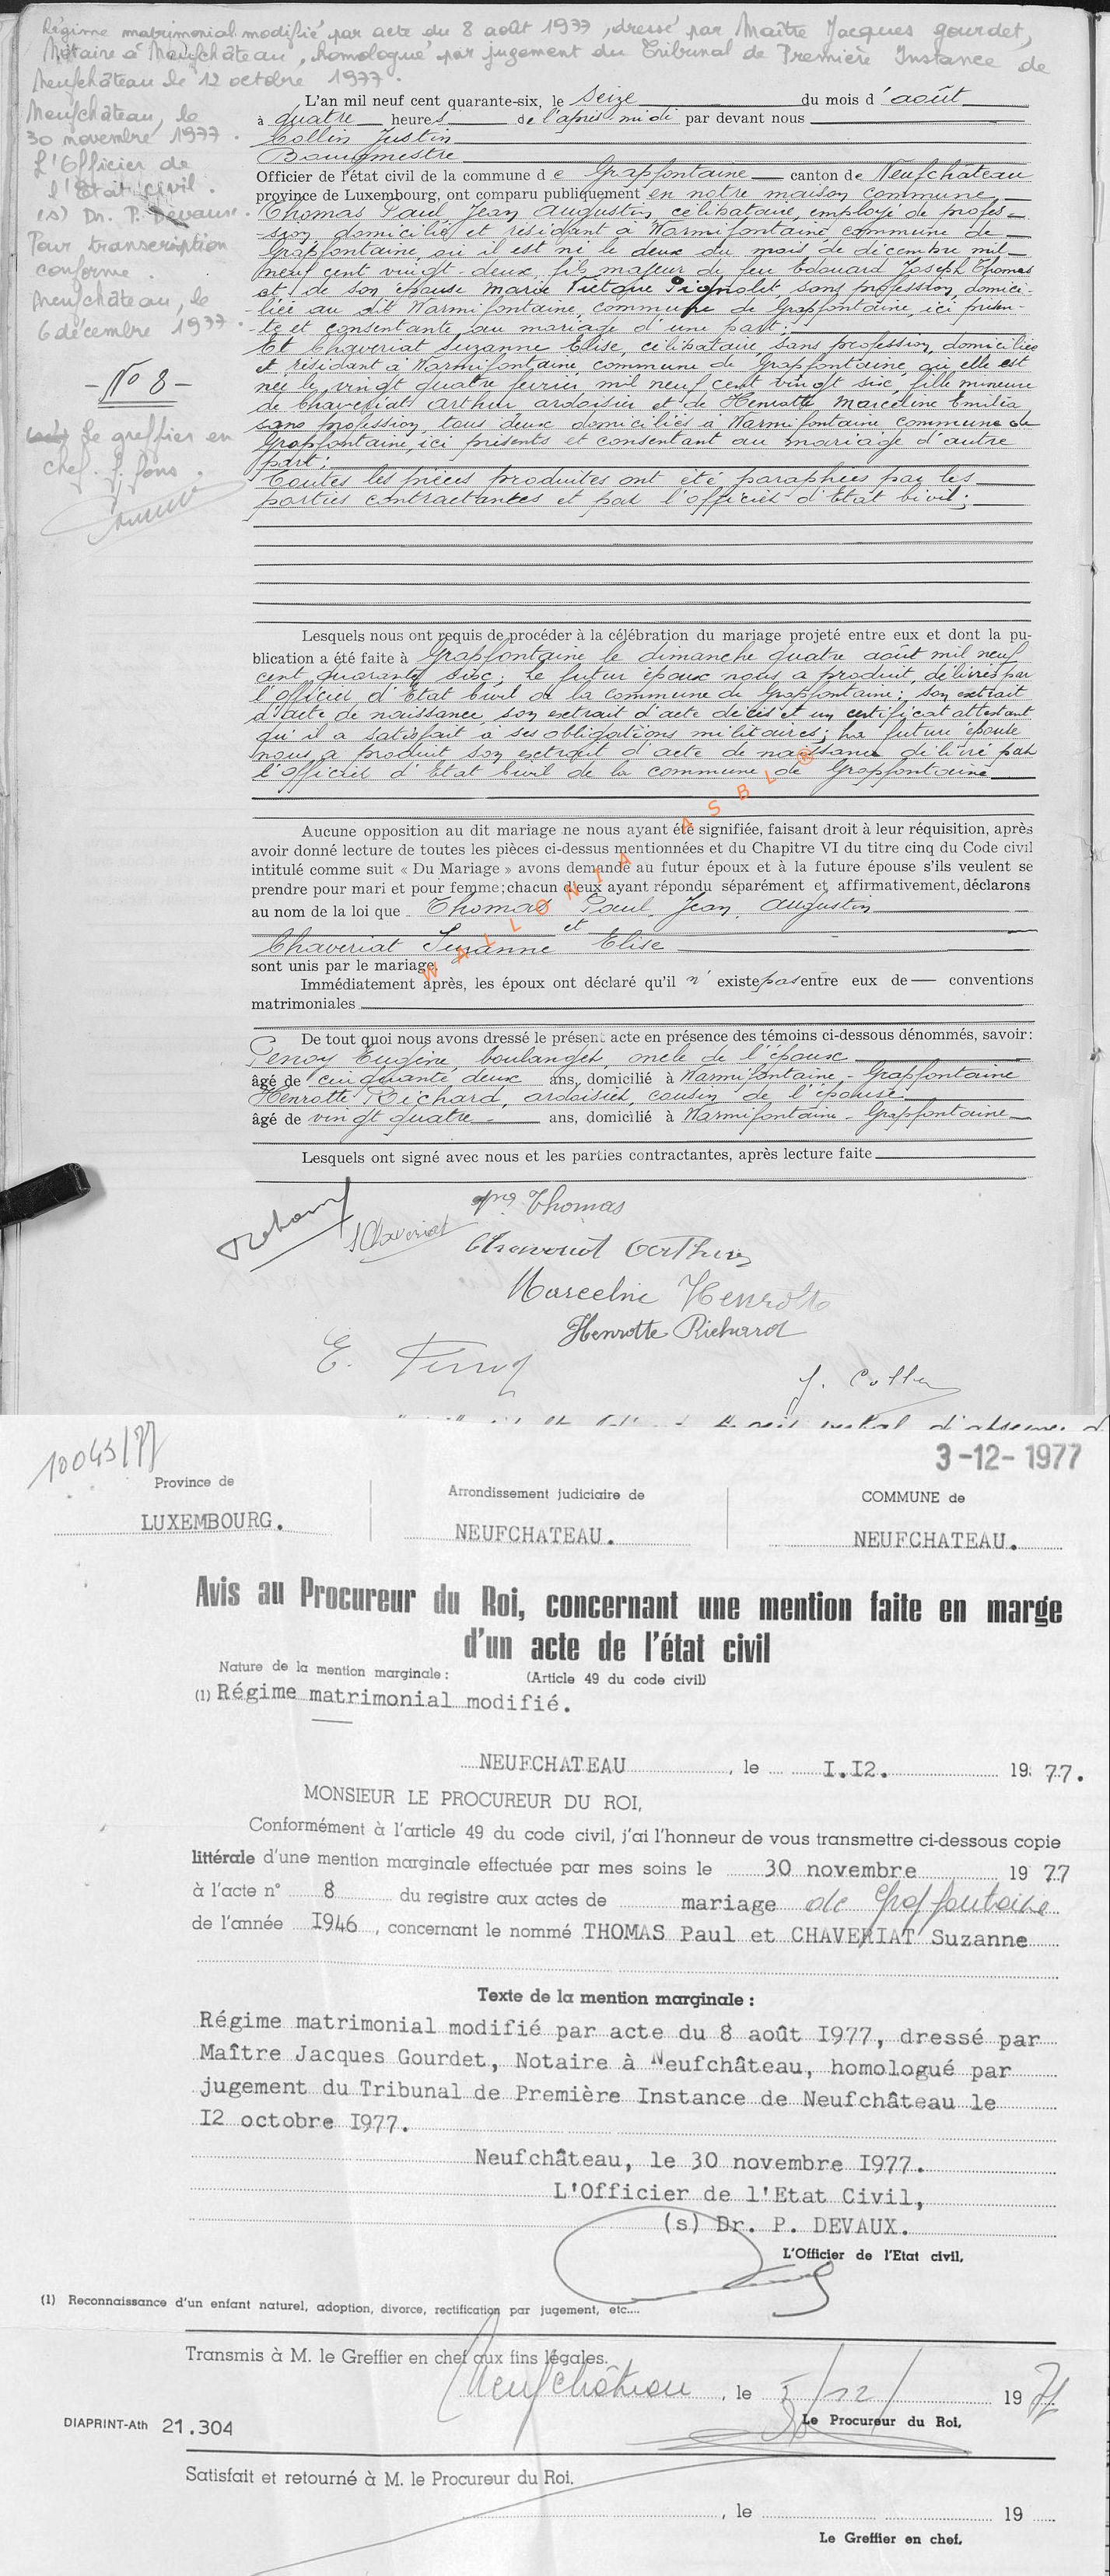 Régime matrimonial modifié par acte du 8 août 1977, dressé par Maître Jacques Gourdet,
Notaire à Neufchâteau, homologué par jugement du Tribunal de Première Instance de
Neufchâteau le 12 octobre 1977.
Neufchâteau, le
30 novembre 1977.
L'Officier de
l'Etat civil.
(s) Dr. P. Devaux.
Pour transcription
conforme.
Neufchâteau, le
6 décembre 1977.
- No 8 -
Le greffier en
chef.
L'an mil neuf cent quarante-six, le seize du mois d'août
à quatre heures de l'après-midi par devant nous
Collin Justin
Bourgmestre
Officier de l'état civil de la commune de Grapfontaine canton de Neufchâteau
province de Luxembourg, ont comparu publiquement en notre maison commune
Thomas Paul, Jean Augustin, célibataire, employé de profes-
sion domicilié et résidant à Warmifontaine commune de
Grapfontaine, où il est né le deux du mois de décembre mil
neuf cent vingt-deux, fils majeur de feu Edouard Joseph Thomas
et de son épouse Marie Pignolet, sans profession, domici-
liée au dit Warmifontaine, commune de Grapfontaine, ici présen-
te et consentante au mariage d'une part;
Et Chaveriat Suzanne Elise, célibataire sans profession, domiciliée
et résidant à Warmifontaine, commune de Grapfontaine, où elle est
née le vingt quatre février mil neuf cent vingt six, fille mineure
de Chaveriat Arthur ardoisier et de Henrotte Marceline Emilia
sans profession, tous deux domiciliés à Warmifontaine commune de
Grapfontaine, ici présents et consentant au mariage d'autre
part;
Toutes les pièces produites ont été paraphées par les
parties contractantes et par l'officier d'Etat Civil;
Lesquels nous ont requis de procéder à la célébration du mariage projeté entre eux et dont la pu-
blication a été faite à Grapfontaine le dimanche quatre août mil neuf
cent quarante six; Le futur époux nous a produit, délivrés par
l'officier d'Etat Civil de la commune de Grapfontaine: son extrait
d'acte de naissance, son extrait d'acte décès et un certificat attestant
qu'il a satisfait à ses obligations militaires; La future épouse
nous a produit son extrait d'acte de naissance délivré par
l'officier d'Etat Civil de la commune de Grapfontaine
WALLONIA ASBL ®
Aucune opposition au dit mariage ne nous ayant été signifiée, faisant droit à leur réquisition, après
avoir donné lecture de toutes les pièces ci-dessus mentionnées et du Chapitre VI du titre cinq du Code civil
intitulé comme suit « Du Mariage » avons demandé au futur époux et à la future épouse s'ils veulent se
prendre pour mari et pour femme; chacun d'eux ayant répondu séparément et affirmativement, déclarons
au nom de la loi que Thomas Paul, Jean, Augustin
et
Chaveriat Suzanne Elise
sont unis par le mariage.
Immédiatement après, les époux ont déclaré qu'il n'existe pas entre eux de conventions
matrimoniales
De tout quoi nous avons dressé le présent acte en présence des témoins ci-dessous dénommés, savoir:
Eugène, boulanger, oncle de l'épouse
âgé de cinquante deux ans, domicilié à Warmifontaine - Grapfontaine
Henrotte Richard, ardoisier, cousin de l'épouse
âgé de vingt quatre ans, domicilié à Warmifontaine - Grapfontaine
Lesquels ont signé avec nous et les parties contractantes, après lecture faite
Thomas
S Chaveriat
Chaveriat Arthur
Marceline Henrotte
Henrotte Richard
E.
J. Collin
10043/77
3-12-1977
Province de
LUXEMBOURG.
Arrondissement judiciaire de
NEUFCHATEAU.
COMMUNE de
NEUFCHATEAU.
Avis au Procureur du Roi, concernant une mention faite en marge
d'un acte de l'état civil
Nature de la mention marginale : (Article 49 du code civil)
(1) Régime matrimonial modifié.
NEUFCHATEAU, le I.I2. 1977.
MONSIEUR LE PROCUREUR DU ROI,
Conformément à l'article 49 du code civil, j'ai l'honneur de vous transmettre ci-dessous copie
littérale d'une mention marginale effectuée par mes soins le 30 novembre 1977
à l'acte n° 8 du registre aux actes de mariage de Grapfontaine
de l'année I946, concernant le nommé THOMAS Paul et CHAVERIAT Suzanne
Texte de la mention marginale :
Régime matrimonial modifié par acte du 8 août I977, dressé par
Maître Jacques Gourdet, Notaire à Neufchâteau, homologué par
jugement du Tribunal de Première Instance de Neufchâteau le
I2 octobre I977.
Neufchâteau, le 30 novembre I977.
L'Officier de l'Etat Civil,
(s) Dr. P. DEVAUX.
L'Officier de l'Etat civil,
(1) Reconnaissance d'un enfant naturel, adoption, divorce, rectification par jugement, etc....
Transmis à M. le Greffier en chef aux fins légales.
Neufchâteau, le 5/12/ 1977
Le Procureur du Roi,
DIAPRINT-Ath 21.304
Satisfait et retourné à M. le Procureur du Roi,
, le 19
Le Greffier en chef,